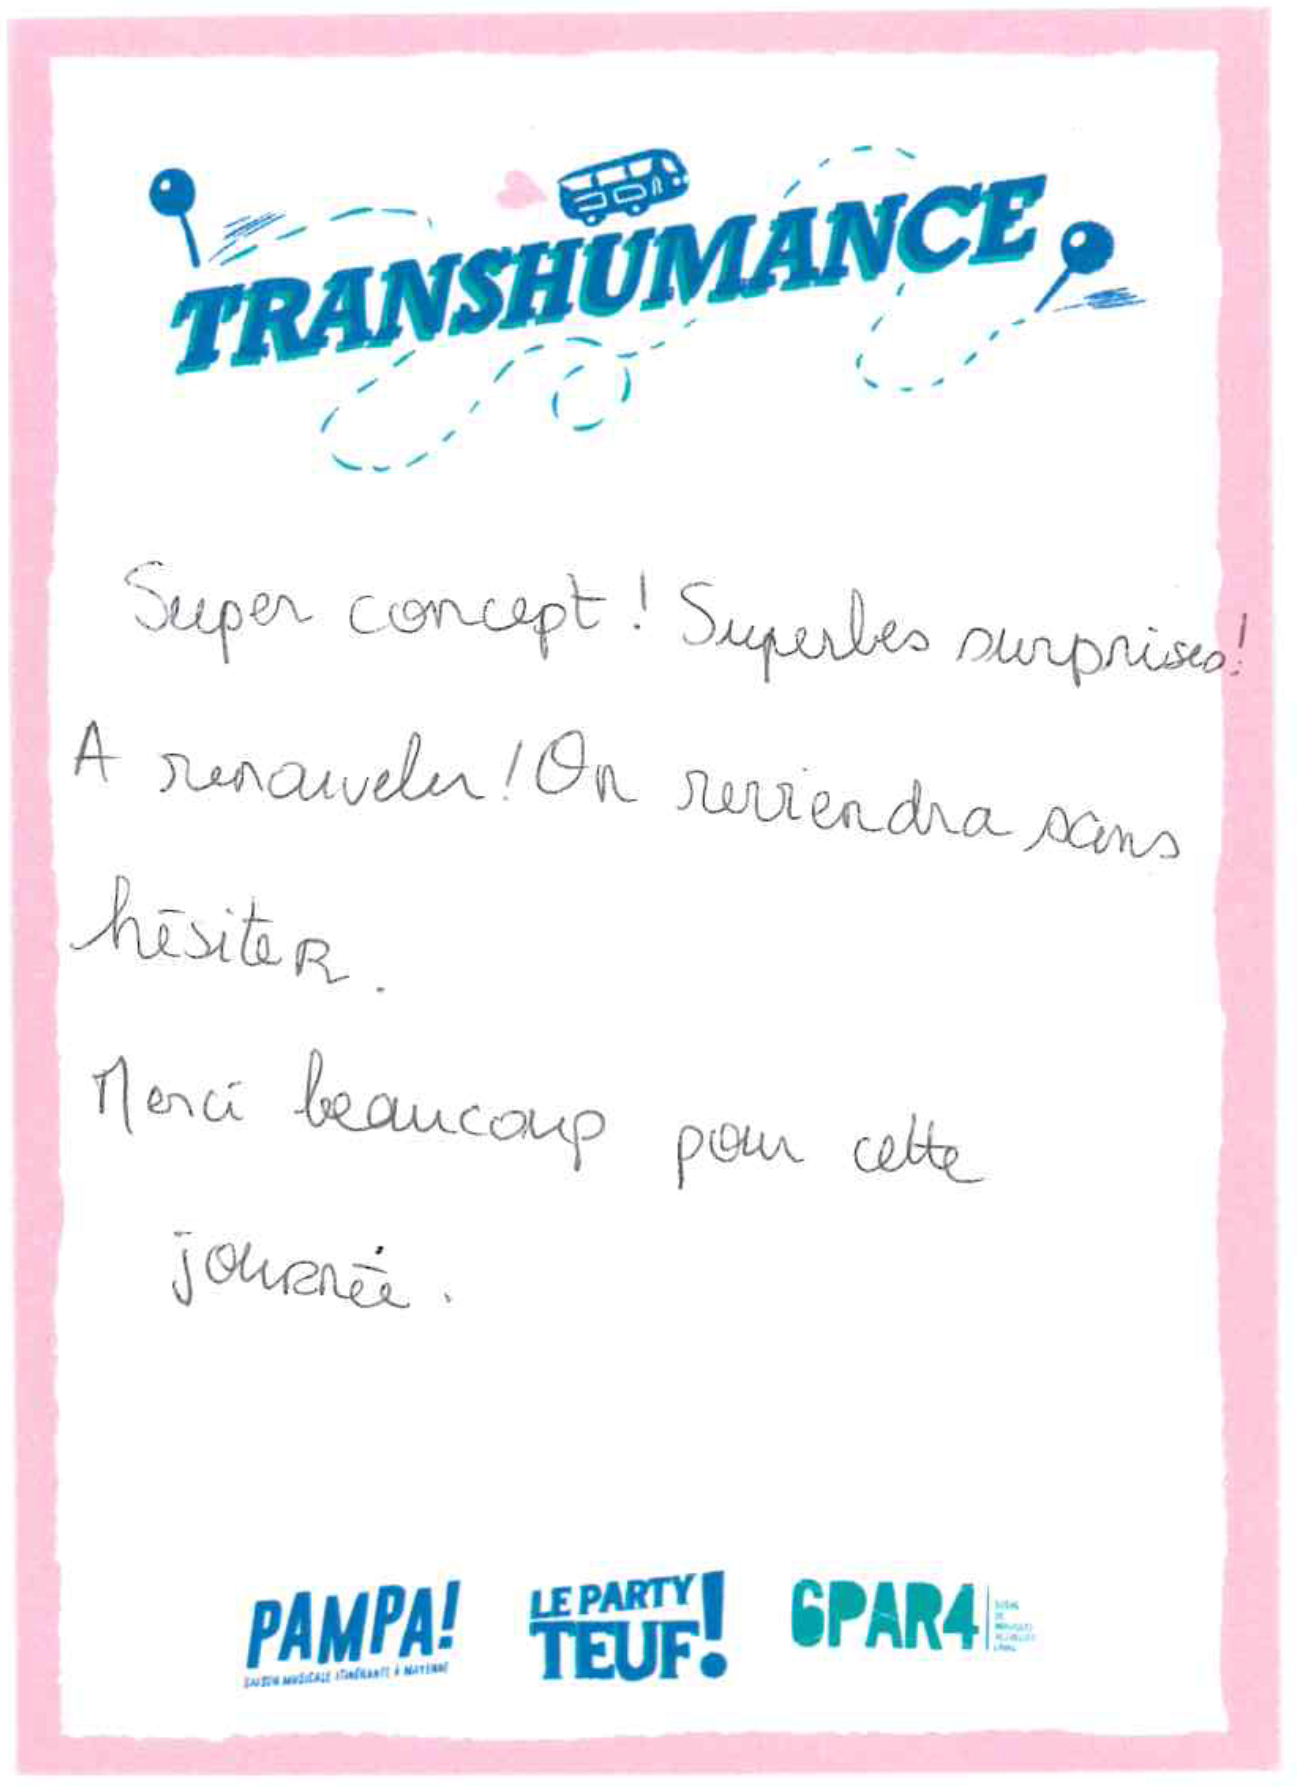 TRANSHUMANCE
Super concept ! Superbes surprises !
A renouveler ! On reviendra sans
hésiter.
Merci beaucoup pour cette
journée.
PAMPA!
SAISON MUSICALE ITINÉRANTE À MAYENNE
LE PARTY
TEUF!
6PAR4